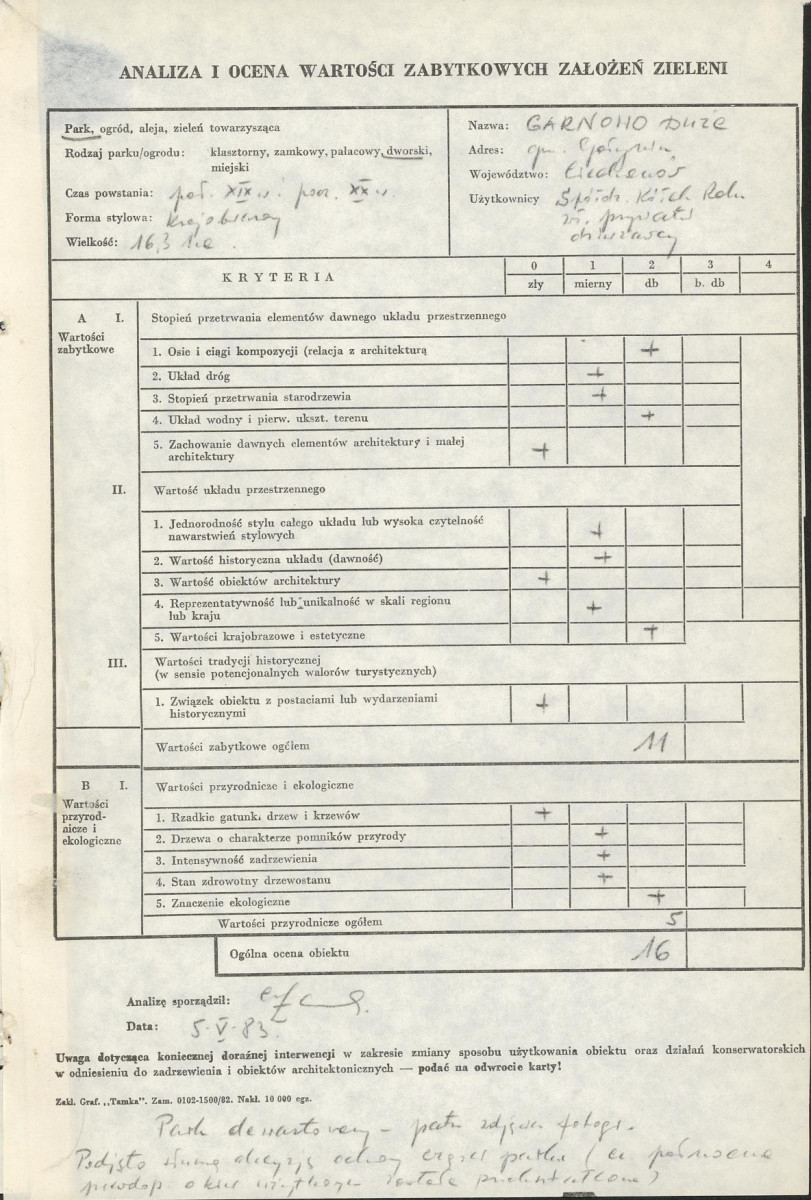 ANALIZA I OCENA WARTOŚCI ZABYTKOWYCH ZAŁOŻEŃ ZIELENI
Park, ogród, aleja, zieleń towarzysząca
Rodzaj parku/ogrodu: klasztorny, zamkowy, pałacowy, dworski,
miejski
Czas powstania: poł. XIX w i pocz. XX w.
Forma stylowa: krajobrazowy
Wielkość: 16,3 ha.
Nazwa: GARNOWO DUŻE
Adres: gm. Gołymin
Województwo: Ciechanów
Użytkownicy Spółdz. Kółek Roln
wł. prywatni
dzierżawcy
KRYTERIA
0 1 2 3 4
zły mierny db b. db
A I. Stopień przetrwania elementów dawnego układu przestrzennego
Wartości
zabytkowe
1. Osie i ciągi kompozycji (relacja z architekturą +
2. Układ dróg +
3. Stopień przetrwania starodrzewia +
4. Układ wodny i pierw. ukszt. terenu +
5. Zachowanie dawnych elementów architektury i małej
architektury +
II. Wartość układu przestrzennego
1. Jednorodność stylu całego układu lub wysoka czytelność
nawarstwień stylowych +
2. Wartość historyczna układu (dawność) +
3. Wartość obiektów architektury +
4. Reprezentatywność lub unikalność w skali regionu
lub kraju +
5. Wartości krajobrazowe i estetyczne +
III. Wartości tradycji historycznej
(w sensie potencjonalnych walorów turystycznych)
1. Związek obiektu z postaciami lub wydarzeniami
historycznymi +
Wartości zabytkowe ogółem 11
B I. Wartości przyrodnicze i ekologiczne
Wartości
przyrod-
nicze i
ekologiczne
1. Rzadkie gatunki drzew i krzewów +
2. Drzewa o charakterze pomników przyrody +
3. Intensywność zadrzewienia +
4. Stan zdrowotny drzewostanu +
5. Znaczenie ekologiczne +
Wartości przyrodnicze ogółem 5
Ogólna ocena obiektu 16
Analizę sporządził:
Data: 5.V.83.
Uwaga dotycząca koniecznej doraźnej interwencji w zakresie zmiany sposobu użytkowania obiektu oraz działań konserwatorskich
w odniesieniu do zadrzewienia i obiektów architektonicznych — podać na odwrocie karty!
Zakł. Graf. „Tamka". Zam. 0102-1500/82. Nakł. 10 000 egz.
Park dewastowany - patrz zdjęcia fotogr.
Podjęto decyzję ochrony części parku (
została przekształcona)